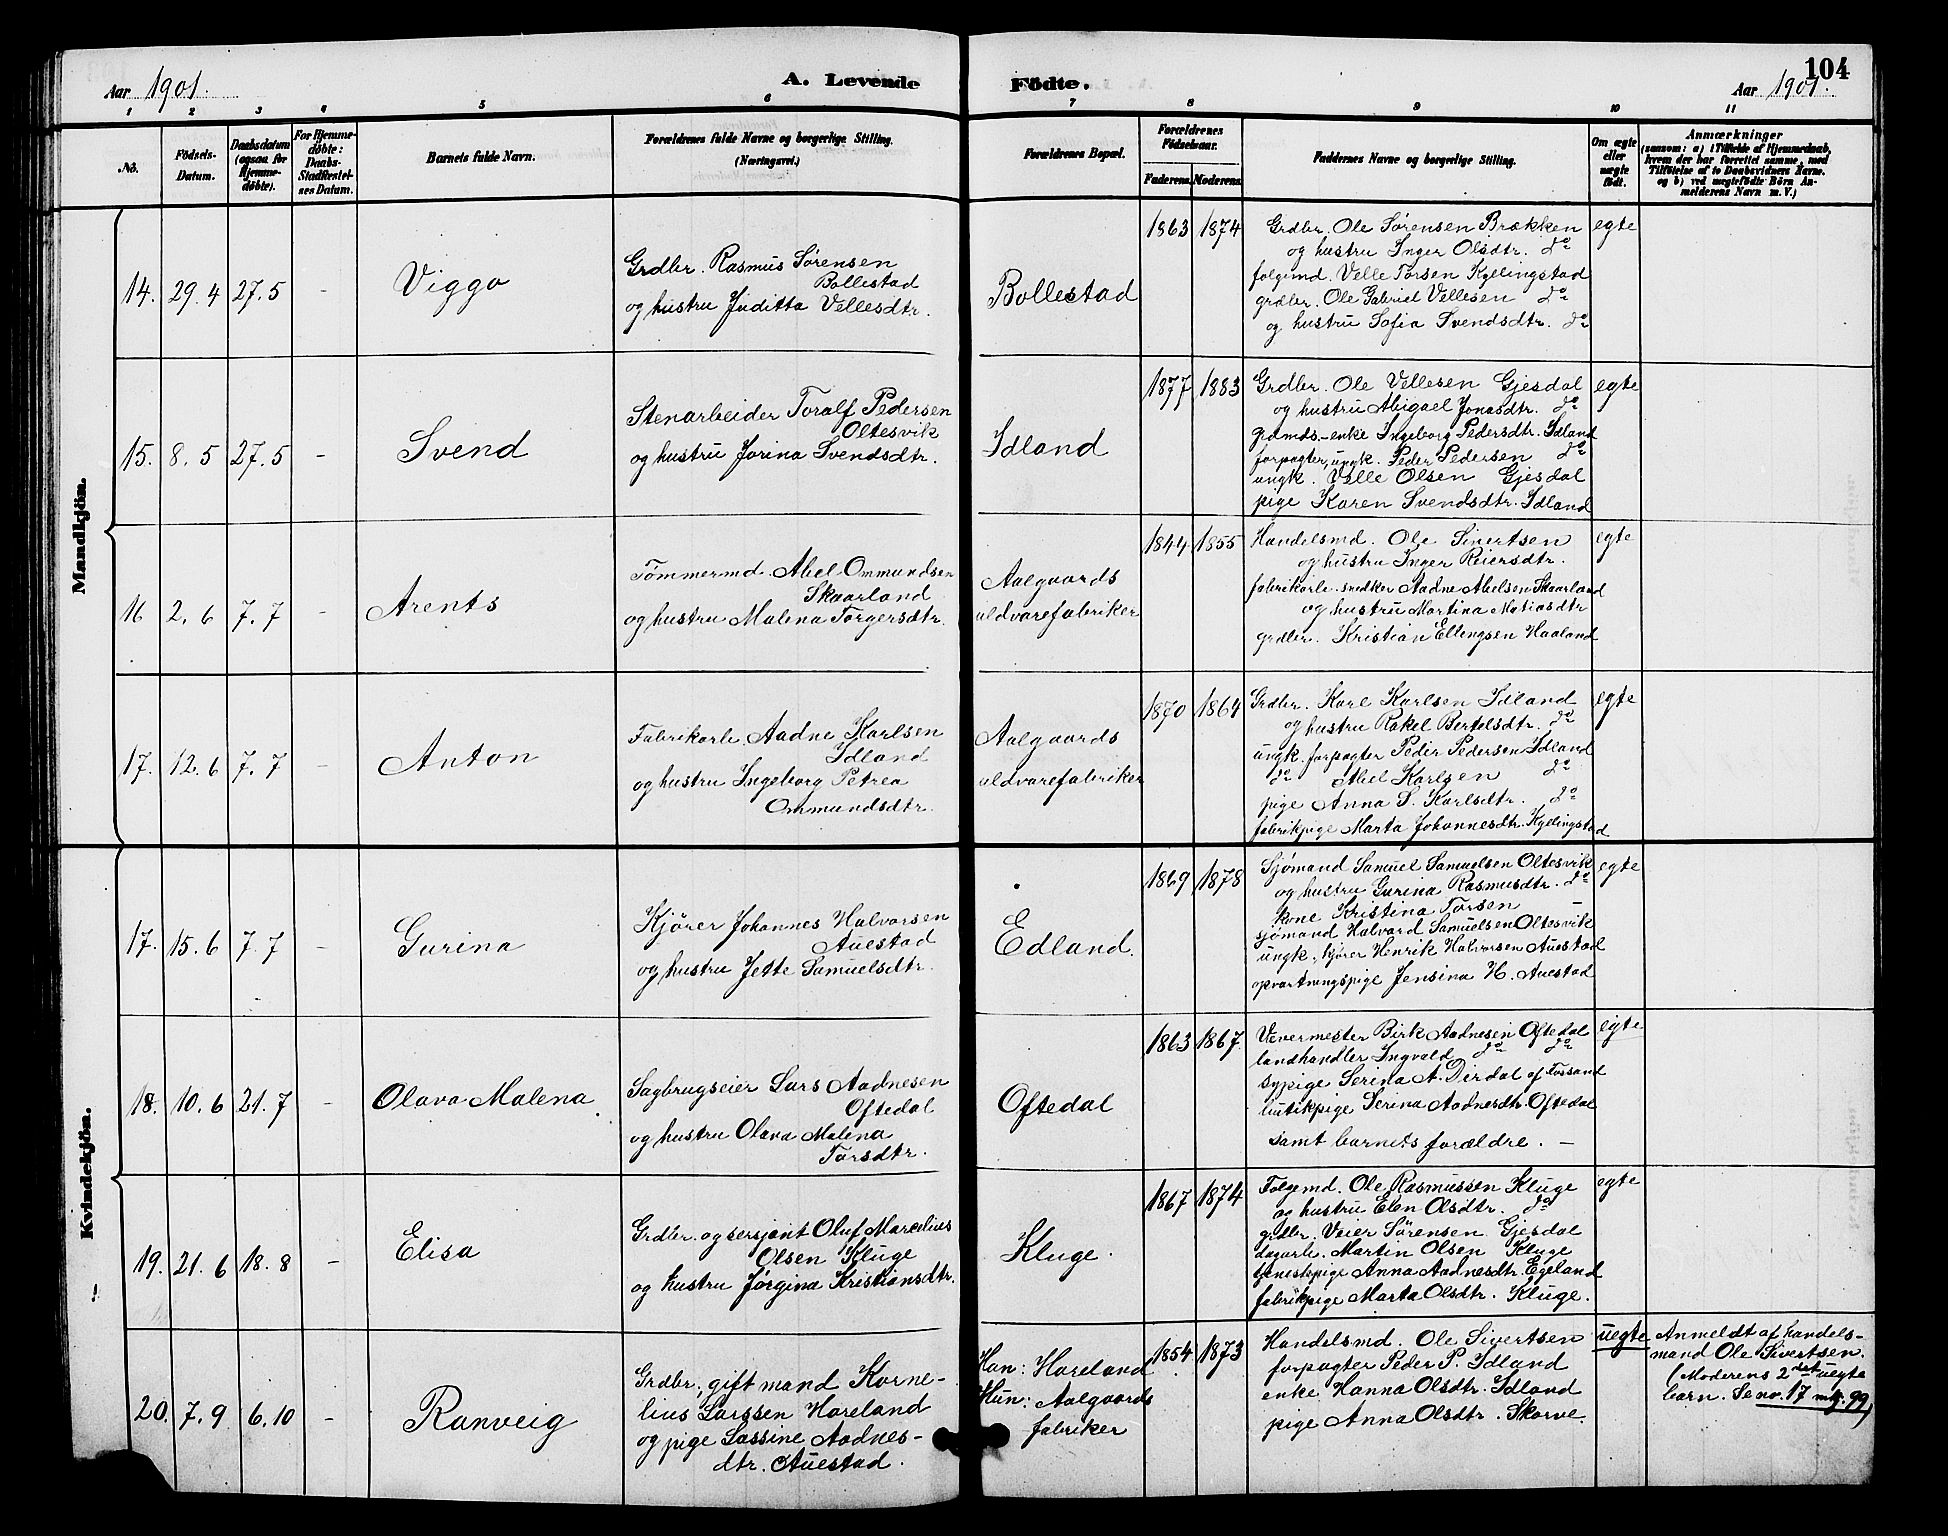 104
Aar 1901.
A. Levende Födte.
Aar 1901.
1 2 3 4 5 6 7 8 9 10 11
No.
Födsels-Datum.
Daabsdatum (ogsaa for Hjemme-döbte).
For Hjemme-döbte: Daabs-Stadfæstel-ses Datum.
Barnets fulde Navn.
Forældrenes fulde Navne og borgerlige Stilling. (Næringsvei.)
Forældrenes Bopæl.
Forældrenes Födselsaar.
Faderens. Moderens.
Faddernes Navne og borgerlige Stilling.
Om ægte eller uægte født.
Anmærkninger
(saasom: a) i Tilfælde af Hjemmedaab,
hvem der har forrettet samme, med
Tilföielse af to Daabsvidners Navne.
og b) ved uægtefödte Börn An-
melderens Navn m. V.)
Mandkjön.
14. 29.4 27.5 - Viggo
Grdbr. Rasmus Sørensen
Bollestad
og hustru Juditta Vellesdtr.
Bollestad
1863 1874
Grdbr. Ole Sørensen Brækken
og hustru Inger Olsdtr. do
følgemd. Velle Torsen Kyllingstad
grdbr. Ole Gabriel Vellesen do
og hustru Sofia Svendsdtr. do
egte
15. 8.5 27.5 - Svend
Stenarbeider Toralf Pedersen
Oltesvik
og hustru Jorina Svendsdtr.
Idland
1877 1883
Grdbr. Ole Vellesen Gjesdal
og hustru Abigael Jonasdtr. do
grdmds.-enke Ingeborg Pedersdtr. Idland
forpagter, ungk. Peder Pedersen do
ungk. Velle Olsen Gjesdal
pige Karen Svendsdtr. Idland
egte
16 2.6 7.7 - Arents
Tømmermd. Abel Ommundsen
Skaarland
og hustru Malena Torgersdtr.
Aalgaards
uldvarefabriker
1844 1855
Handelsmd. Ole Sivertsen
og hustru Inger Reiersdtr.
fabrikarb. snedker Aadne Abelsen Skaarland
og hustru Martina Matiasdtr
grdbr. Kristian Ellingsen Haaland
egte
17. 12.6 7.7 - Anton
Fabrikarb. Aadne Karlsen
Idland
og hustru Ingeborg Petrea
Ommundsdtr.
Aalgaards
uldvarefabriker
1870 1864
Grdbr. Karl Karlsen Idland
og hustru Rakel Bertelsdtr. do
ungk. forpagter Peder Pedersen Idland
do Abel Karlsen do
pige Anna S. Karlsdtr. do
fabrikpige Marta Johannesdtr. Kyllingstad
egte
Kvindekjön.
17. 15.6 7.7 - Gurina
Kjører Johannes Halvorsen
Auestad
og hustru Jette Samuelsdtr.
Edland.
1869 1878
Sjømand Samuel Samuelsen Oltesvik
og hustru Gurina Rasmusdtr. do
kone Kristina Torsen -
sjømand Halvard Samuelsen Oltesvik
ungk. kjører Henrik Halvorsen Auestad
opvartningspige Jensina H. Auestad
egte
18. 10.6 21.7 - Olava Malena
Sagbrugseier Lars Aadnesen
Oftedal
og hustru Olava Malena
Torsdtr.
Oftedal
1863 1867.
Vævermester Birk Aadnesen Oftedal
landhandler Ingvald do do
sypige Serina A. Dirdal af Fossand
butikpige Serina Aadnesdtr. Oftedal
samt barnets forældre. -
egte
19. 21.6 18.8 - Elisa
Grdbr. og sersjant Oluf Marcelius
Olsen Kluge
og hustru Jørgina Kristiansdtr.
Kluge.
1867 1874
Følgemd. Ole Rasmussen Kluge
og hustru Elen Olsdtr. do
grdbr. Veier Sørensen Gjesdal
dagarb. Martin Olsen Kluge
tjenestpige Anna Aadnesdtr. Egeland
fabrikpige Marta Olsdtr. Kluge.
egte
20. 7.9 6.10 - Ranveig
Grdbr., gift mand Korne-
lius Larssen Hareland
og pige Lassine Aadnes-
dtr. Auestad.
Han: Hareland
Hun: Aalgaards
fabriker
1854 1873
Handelsmd. Ole Sivertsen
forpagter Peder P. Idland
enke Hanna Olsdtr. Idland
pige Anna Olsdtr. Skorve
uegte
Anmeldt af handels-
mand Ole Sivertsen.
(Moderens 2det uegte
barn. Se no. 17 mkj. 99)